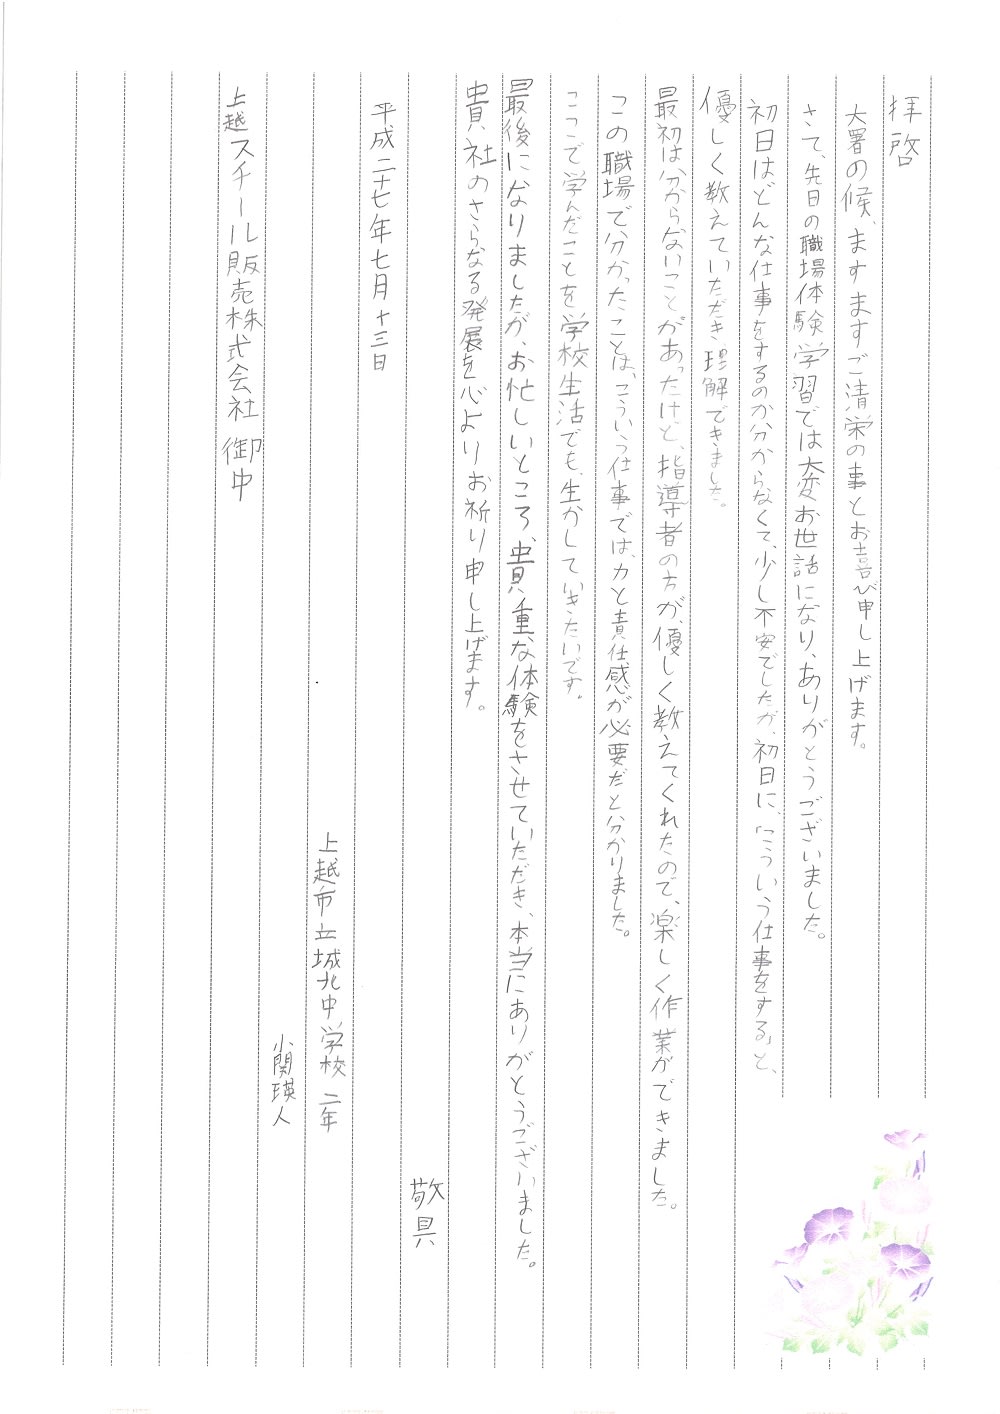 拝啓
大署の候、ますますご清栄の事とお喜び申し上げます。
さて、先日の職場体験学習では大変お世話になり、ありがとうございました。
初日はどんな仕事をするのか分からなくて、少し不安でしたが、初日に、「こういう仕事をする」と、
優しく教えていただき理解できました。
最初は分からないことがあったけど、指導者の方が、優しく教えてくれたので、楽しく作業ができました。
この職場で分かったことは、こういう仕事では、力と責任感が必要だと分かりました。
ここで学んだことを学校生活でも、生かしていきたいです。
最後になりましたが、お忙しいところ、貴重な体験をさせていただき、本当にありがとうございました。
貴社のさらなる発展を心よりお祈り申し上げます。
敬具
平成二十七年七月十三日
上越市立城北中学校 二年
小関瑛人
上越スチール販売株式会社 御中